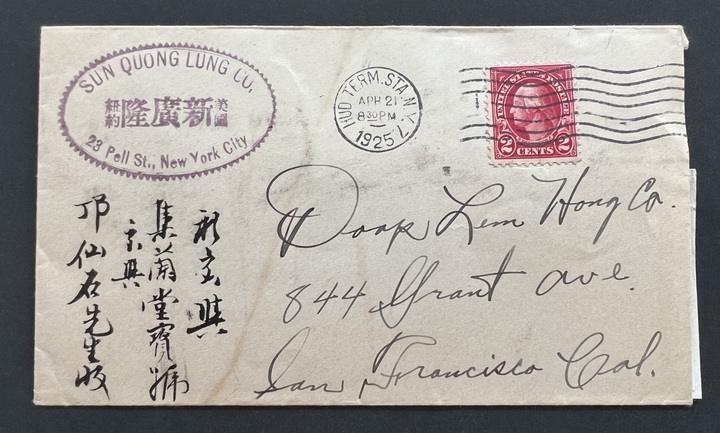 SUN QUONG LUNG CO.
紐約 隆廣新 美國
23 Pell St., New York City
HUD TERM. STA. N.Y.
APR 21
8 30 PM
1925
UNITED STATES POSTAGE
2 CENTS 2
Lem Hong Co.
844 Grant ave.
San Francisco Cal.
集蘭堂寶號
仙石先生收